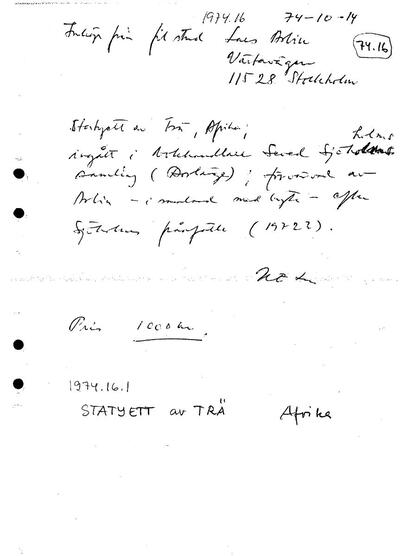 1974.16 74-10-14
Inköpt från fil stud Lars Arlin
74.16
Värtavägen
11528 Stockholm
Statyett av Trä, Afrika;
holms
ingått i bokhandlare Seved Sjöholms
samling (Borlänge); förvärvad av
Arlin - i samband med byte - efter
Sjöholms frånfälle (1972?).
Pris 1000 kr.
1974.16.1
STATYETT av TRÄ Afrika